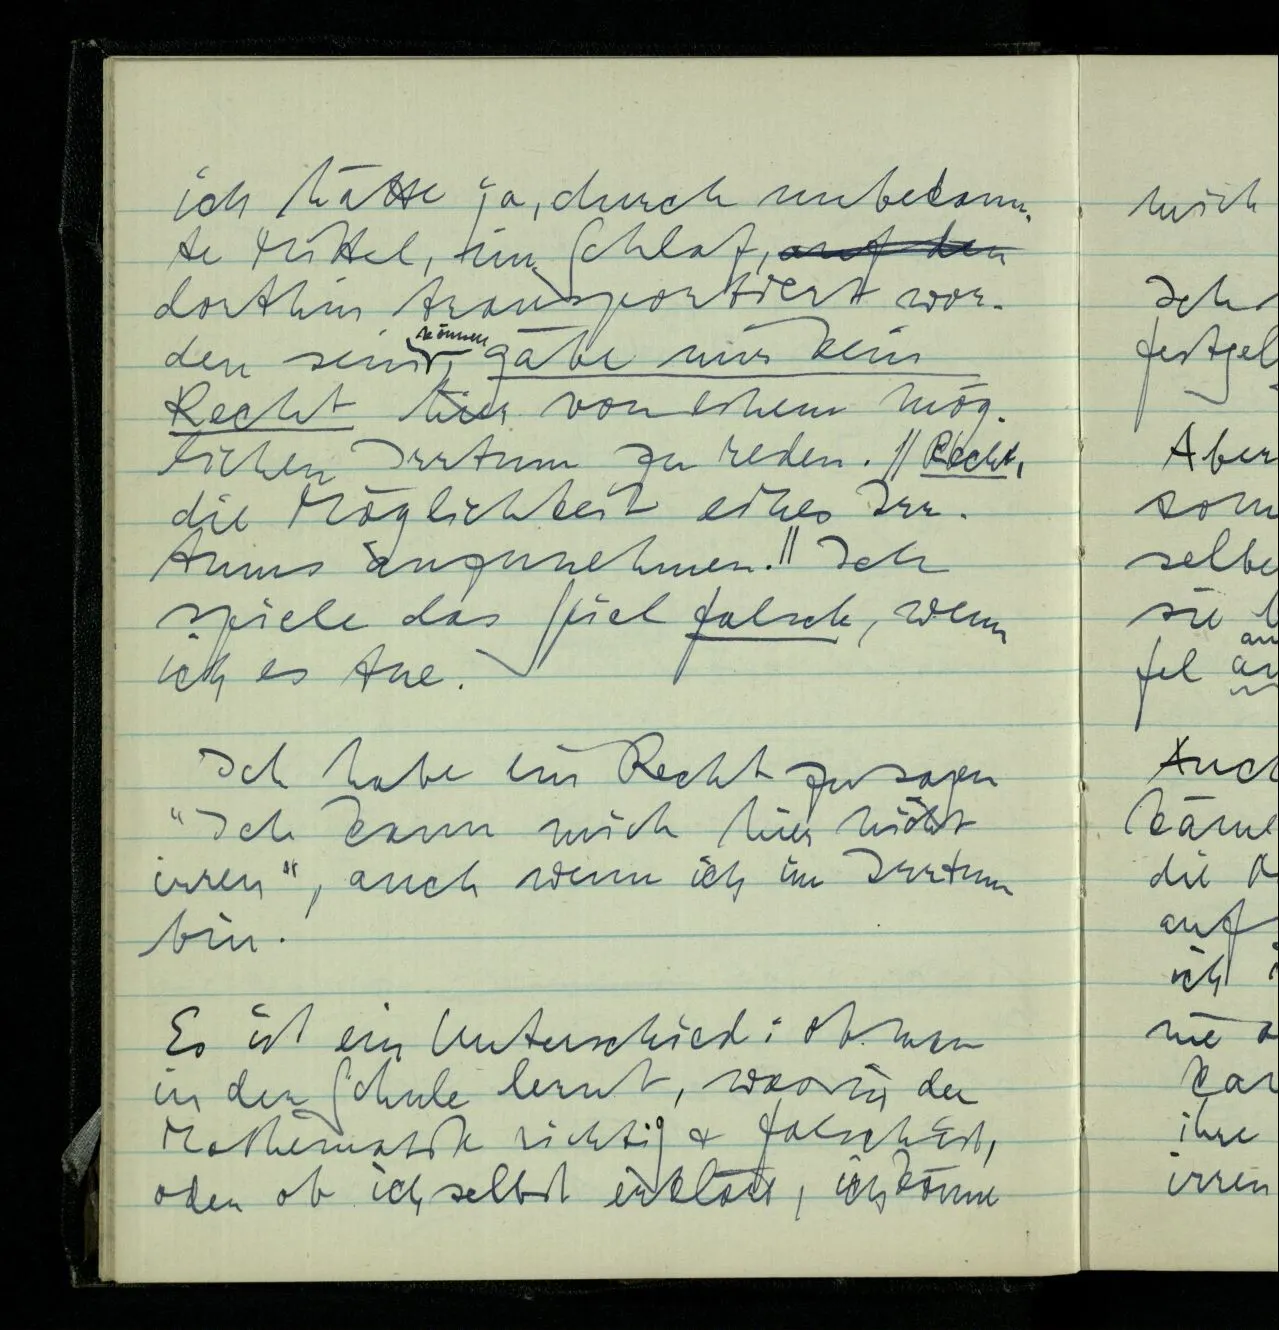 ich hätte ja, durch unbekann-
te Mittel, im Schlaf, auf den
dorthin transportiert wor-
den sein können, gäbe mir kein
Recht hier von einem mög-
lichen Irrtum zu reden. // Recht,
die Möglichkeit eines Irr-
tums anzunehmen. // Ich
spiele das Spiel falsch, wenn
ich es tue.
Ich habe ein Recht zu sagen
"Ich kann mich hier nicht
irren", auch wenn ich im Irrtum
bin.
Es ist ein Unterschied: ob man
in der Schule lernt, was in der
Mathematik richtig & falsch ist,
oder ob ich selbst erkläre, ich könne
mich
Ich
festgel
Aber
som
selbe
sie
fel
Auch
käme
die
auf
ich
nie
kan
ihre
irren